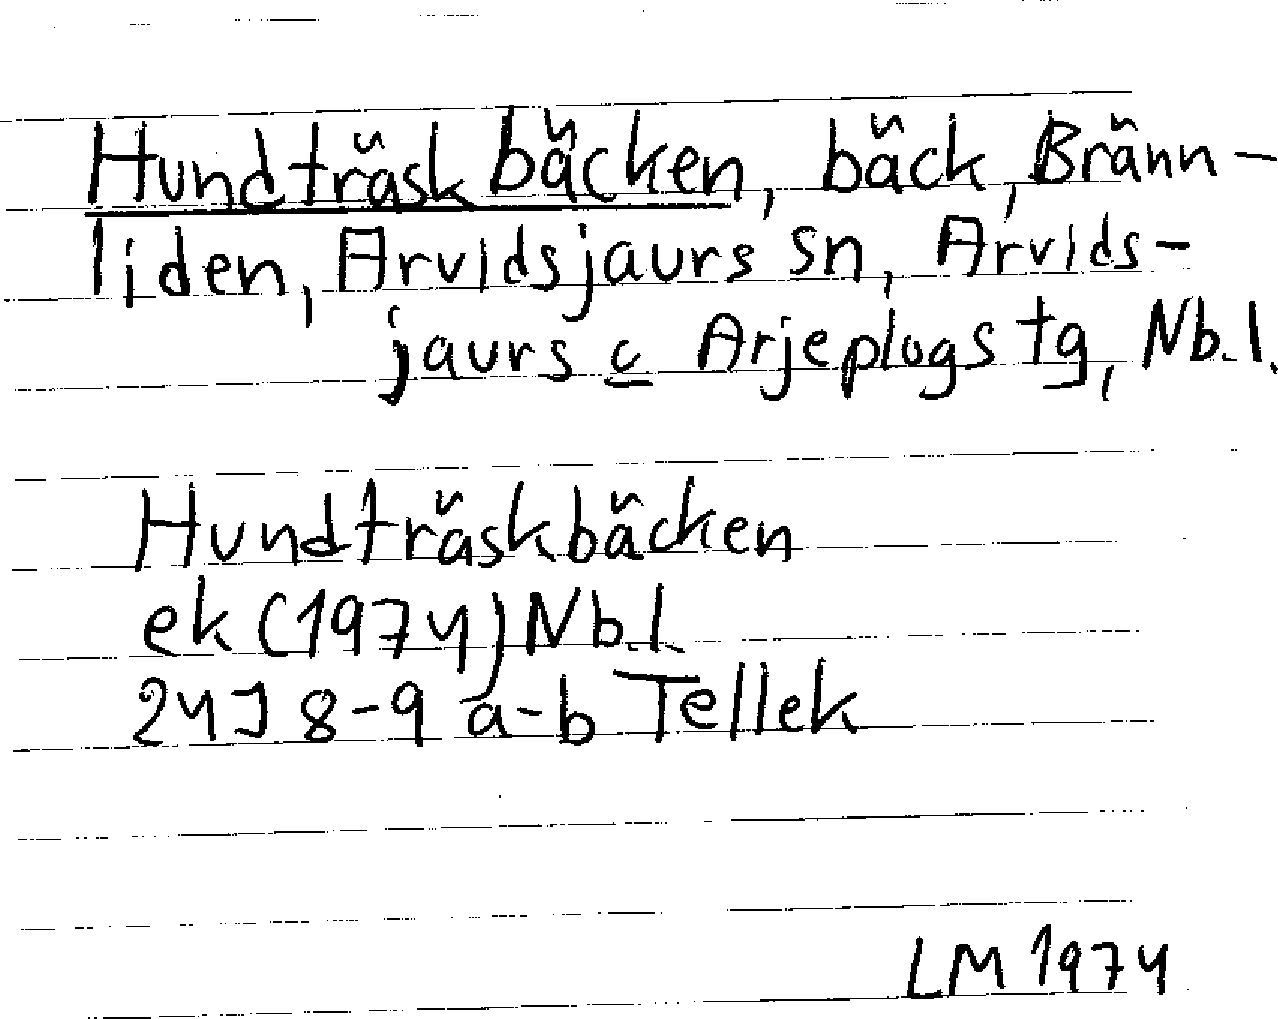 Hundträskbäcken, bäck, Bränn-
liden, Arvidsjaurs sn, Arvids-
jaurs o Arjeplogs tg, Nb.l.
Hundträskbäcken
ek (1974) Nb.l.
24J 8-9 a-b Tellek
LM 1974